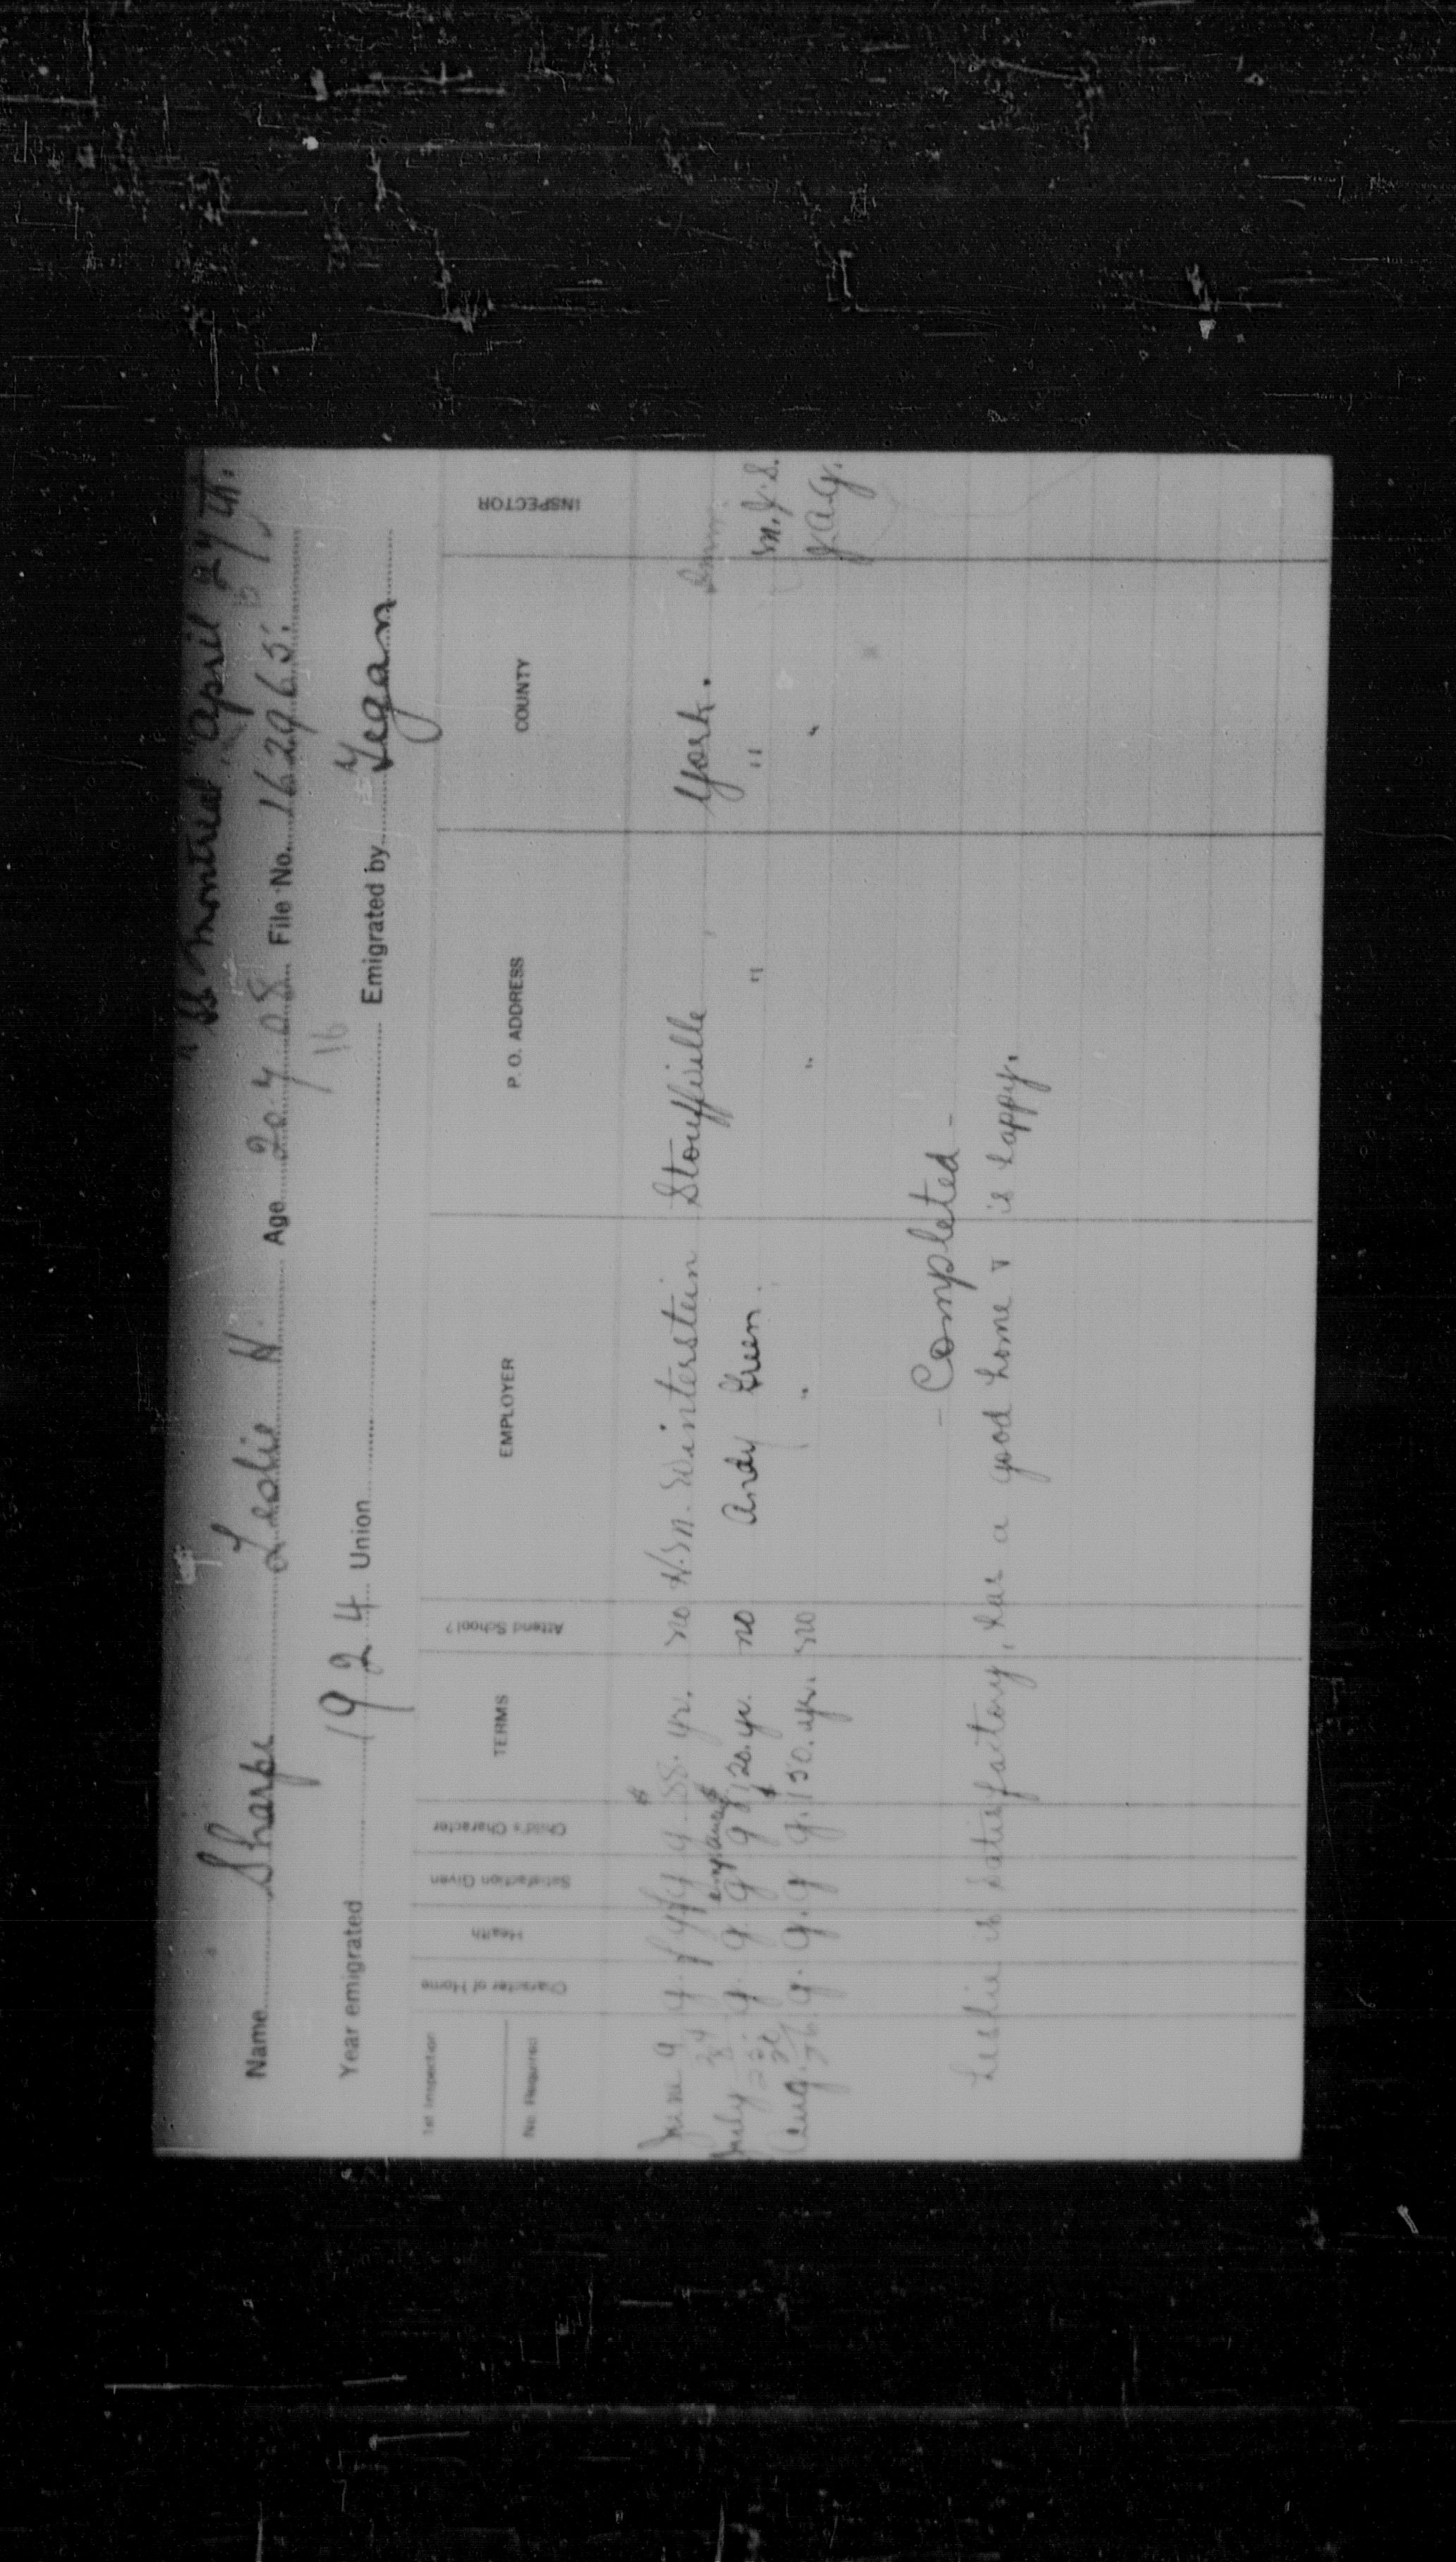 "SS Montreal" April 27th.
Name Sharpe Leslie H. Age 20.4.08 File No. 162965.
16
Year emigrated 1924 Union Emigrated by Fegan
1st Inspection
No. Required
Character of Home Health Satisfaction Given Child's Character TERMS Attend School? EMPLOYER P. O. ADDRESS COUNTY INSPECTOR
June 9 g. $ 88. yr. no H. M. Winterstein Stouffville York.
July g. g. g g $120. yr. no Andy Green. " " M.J.S.
Aug. g. g. g g. $150. yr. no " " " J.A.G.
- Completed -
Leslie is satisfactory, has a good home & is happy.